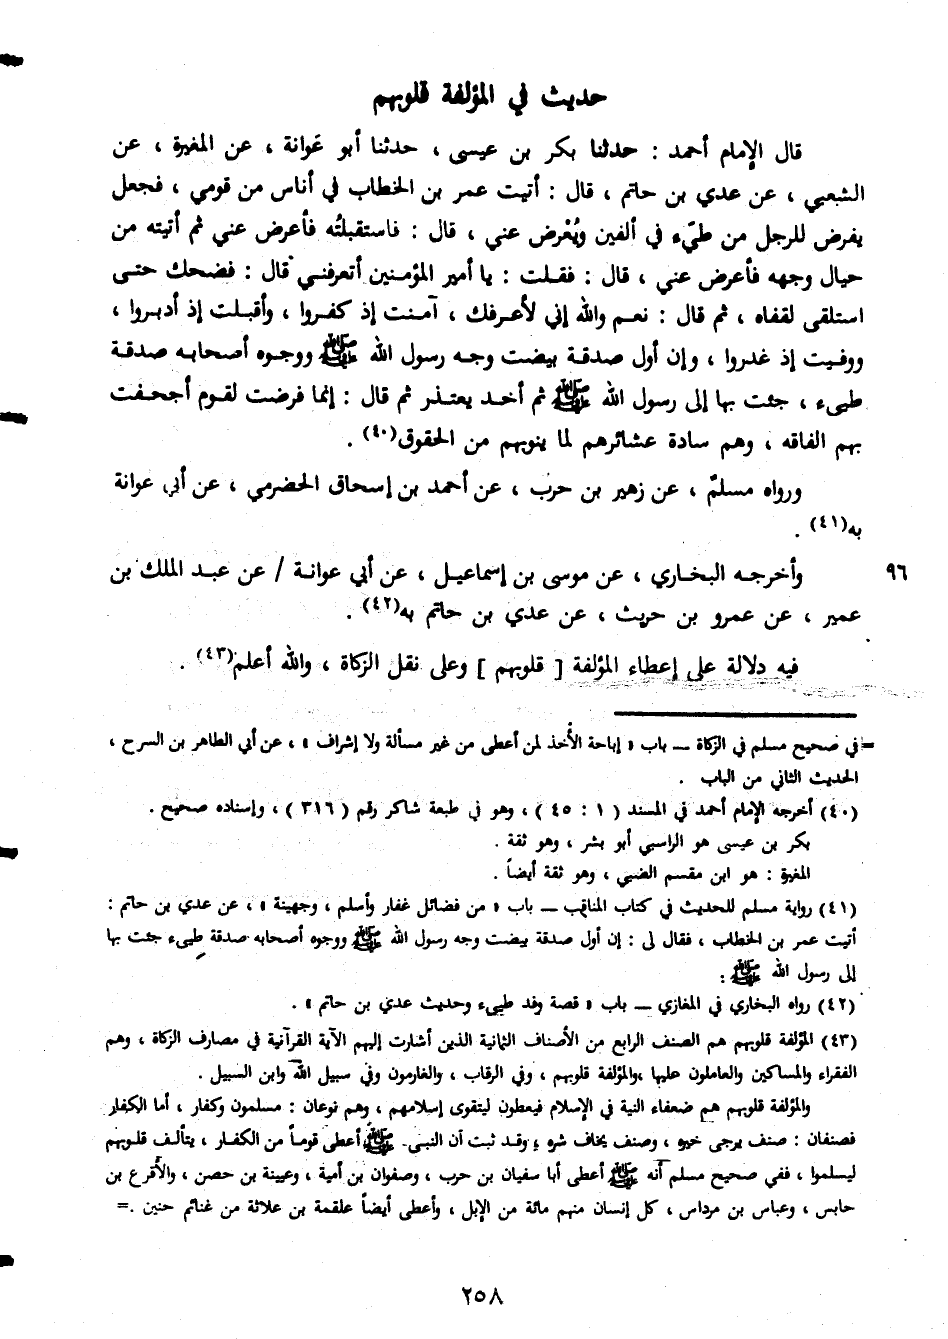 حديث في المؤلفة قلوبهم
قال الإمام أحمد : حدثنا بكر بن عيسى ، حدثنا أبو عَوانة ، عن المغيرة ، عن
الشعبي ، عن عدي بن حاتم ، قال : أتيت عمر بن الخطاب في أناس من قومي ، فجعل
يفرض للرجل من طيّء في ألفين ويُعْرض عني ، قال : فاستقبلتُه فأعرض عني ثم أتيته من
حيال وجهه فأعرض عني ، قال : فقلت : يا أمير المؤمنين أتعرفني قال : فضحك حتى
استلقى لقفاه ، ثم قال : نعم والله إني لأعرفك ، آمنت إذ كفروا ، وأقبلت إذ أدبروا ،
ووفيت إذ غدروا ، وإن أول صدقة بيضت وجه رسول الله ﷺ ووجوه أصحابه صدقة
طيىء ، جئت بها إلى رسول الله ﷺ ثم أخد يعتذر ثم قال : إنما فرضت لقوم أجحفت
بهم الفاقه ، وهم سادة عشائرهم لما ينوبهم من الحقوق(٤٠) .
ورواه مسلمّ ، عن زهير بن حرب ، عن أحمد بن إسحاق الحضرمي ، عن أبي عوانة
به(٤١) .
٩٦ وأخرجه البخاري ، عن موسى بن إسماعيل ، عن أبي عوانة / عن عبد الملك بن
عمير ، عن عمرو بن حريث ، عن عدي بن حاتم به(٤٢) .
فيه دلالة على إعطاء المؤلفة [ قلوبهم ] وعلى نقل الزكاة ، والله أعلم(٤٣) .
= في صحيح مسلم في الزكاة ــ باب « إباحة الأخذ لمن أعطى من غير مسألة ولا إشراف » ، عن أبي الطاهر بن السرح ،
الحديث الثاني من الباب .
(٤٠) أخرجه الإمام أحمد في المسند ( ١ : ٤٥ ) ، وهو في طبعة شاكر رقم ( ٣١٦ ) ، وإسناده صحيح .
بكر بن عيسى هو الراسبي أبو بشر ، وهو ثقة .
المغيرة : هو ابن مقسم الضبي ، وهو ثقة أيضاً .
(٤١) رواية مسلم للحديث في كتاب المناقب ــ باب « من فضائل غفار وأسلم ، وجهينة » ، عن عدي بن حاتم :
أتيت عمر بن الخطاب ، فقال لى : إن أول صدقة بيضت وجه رسول الله ﷺ ووجوه أصحابه صدقة طيىء جئت بها
إلى رسول الله ﷺ :
(٤٢) رواه البخاري في المغازي ــ باب « قصة وفد طيىء وحديث عدي بن حاتم » .
(٤٣) المؤلفة قلوبهم هم الصنف الرابع من الأصناف الثمانية الذين أشارت إليهم الآية القرآنية في مصارف الزكاة ، وهم
الفقراء والمساكين والعاملون عليها ،والمؤلفة قلوبهم ، وفي الرقاب ، والغارمون وفي سبيل الله وابن السبيل .
والمؤلفة قلوبهم هم ضعفاء النية في الإسلام فيعطون ليتقوى إسلامهم ، وهم نوعان : مسلمون وكفار ، أما الكفار
فصنفان : صنف يرجى خيره ، وصنف يخاف شره ، وقد ثبت أن النبي ﷺ أعطى قوماً من الكفار ، يتألف قلوبهم
ليسلموا ، ففي صحيح مسلم أنه ﷺ أعطى أبا سفيان بن حرب ، وصفوان بن أمية ، وعيينة بن حصن ، والأقرع بن
حابس ، وعباس بن مرداس ، كل إنسان منهم مائة من الإبل ، وأعطى أيضاً علقمة بن علاثة من غنائم حنين .=
٢٥٨